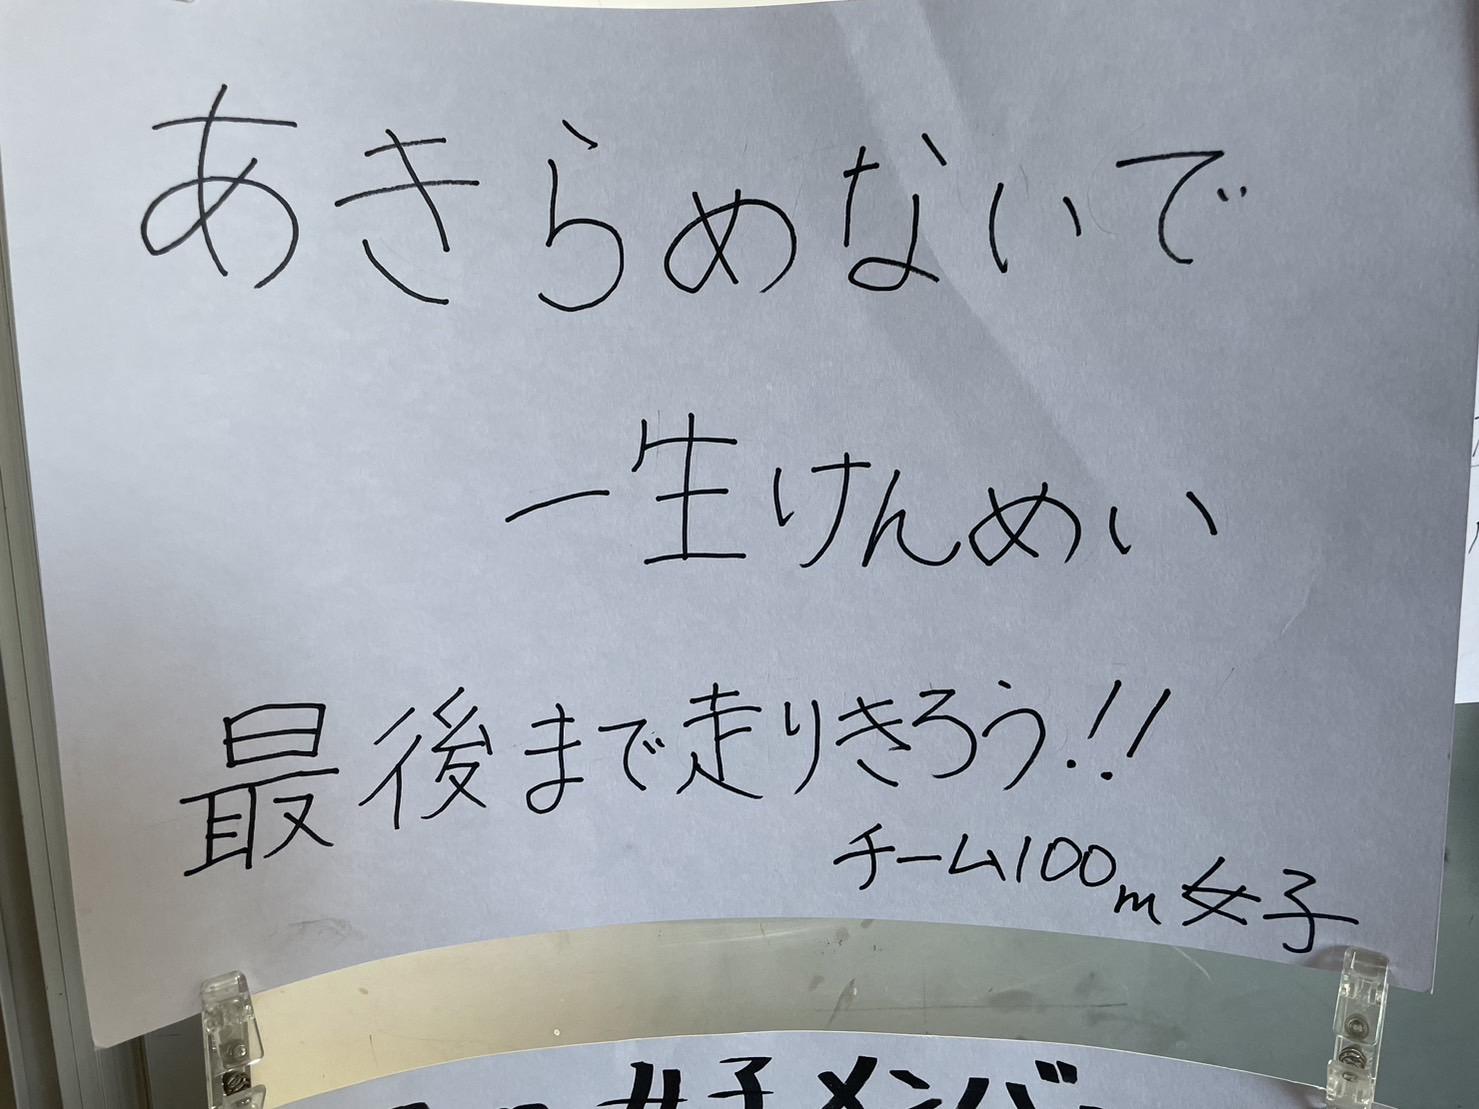 あきらめないで
一生けんめい
最後まで走りきろう!!
チーム100m女子
女子メンバー